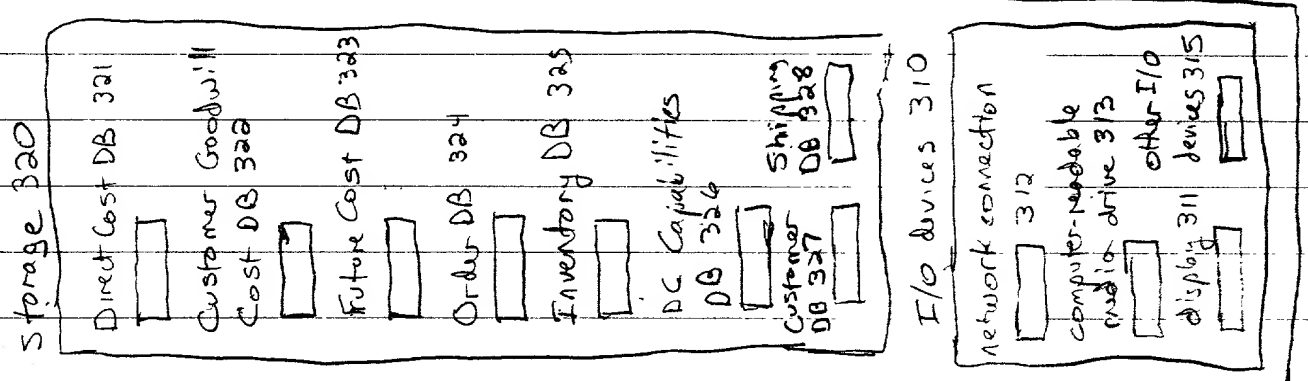 Storage 320
Direct Cost DB 321
Customer Goodwill
Cost DB 322
Future Cost DB 323
Order DB 324
Inventory DB 325
DC Capabilities
DB 326
Customer
DB 327
Shipping
DB 328
I/O devices 310
network connection
312
computer-readable
media drive 313
display 311
other I/O
devices 315